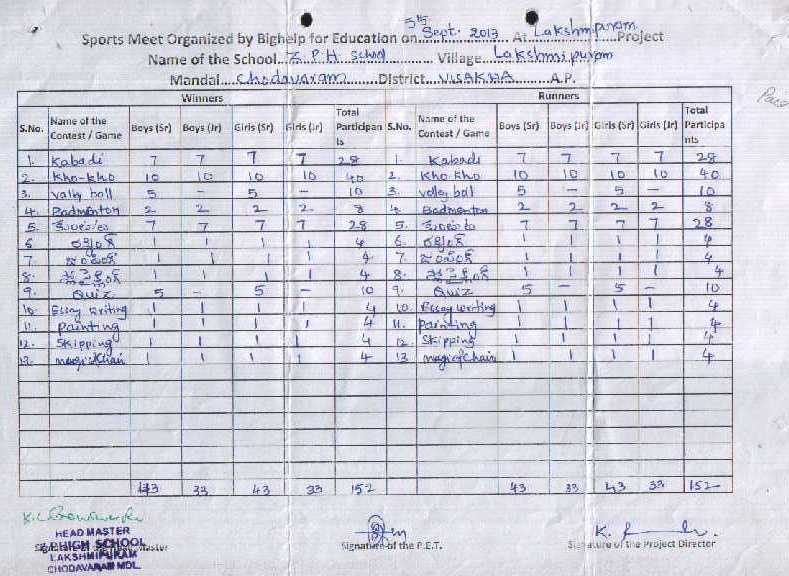 Sports Meet Organized by Bighelp for Education on 5th Sept. 2013 At Lakshmipuram Project
Name of the School Z.P.H School Village Lakshmipuram
Mandal Chodavaram District VISAKHA A.P.
Winners Runners
S.No. Name of the Contest / Game Boys (Sr) Boys (Jr) Girls (Sr) Girls (Jr) Total Participants S.No. Name of the Contest / Game Boys (Sr) Boys (Jr) Girls (Sr) Girls (Jr) Total Participants
1. Kabadi 7 7 7 7 28 1. Kabadi 7 7 7 7 28
2. Kho-kho 10 10 10 10 40 2. Kho kho 10 10 10 10 40
3. Valley ball 5 - 5 - 10 3. Voley bal 5 - 5 - 10
4. Badmenton 2 2 2 2 8 4. Badmenton 2 2 2 2 8
5. 7 7 7 7 28 5. 7 7 7 7 28
6 రన్నింగ్ 1 1 1 1 4 6. రన్నింగ్ 1 1 1 1 4
7. జంపింగ్ 1 1 1 1 4 7. జంపింగ్ 1 1 1 1 4
8. 1 1 1 1 4 8. 1 1 1 1 4
9. Quiz 5 - 5 - 10 9. Quiz 5 - 5 - 10
10. Essay writing 1 1 1 1 4 10. Essay writing 1 1 1 1 4
11. Painting 1 1 1 1 4 11. Painting 1 1 1 1 4
12. Skipping 1 1 1 1 4 12. Skipping 1 1 1 1 4
13. magicchair 1 1 1 1 4 13 magicchair 1 1 1 1 4
43 33 43 33 152 43 33 43 33 152
HEAD MASTER
Z.P.HIGH SCHOOL
LAKSHMIPURAM
CHODAVARAM MDL.
Signature of the Head Master Signature of the P.E.T. Signature of the Project Director